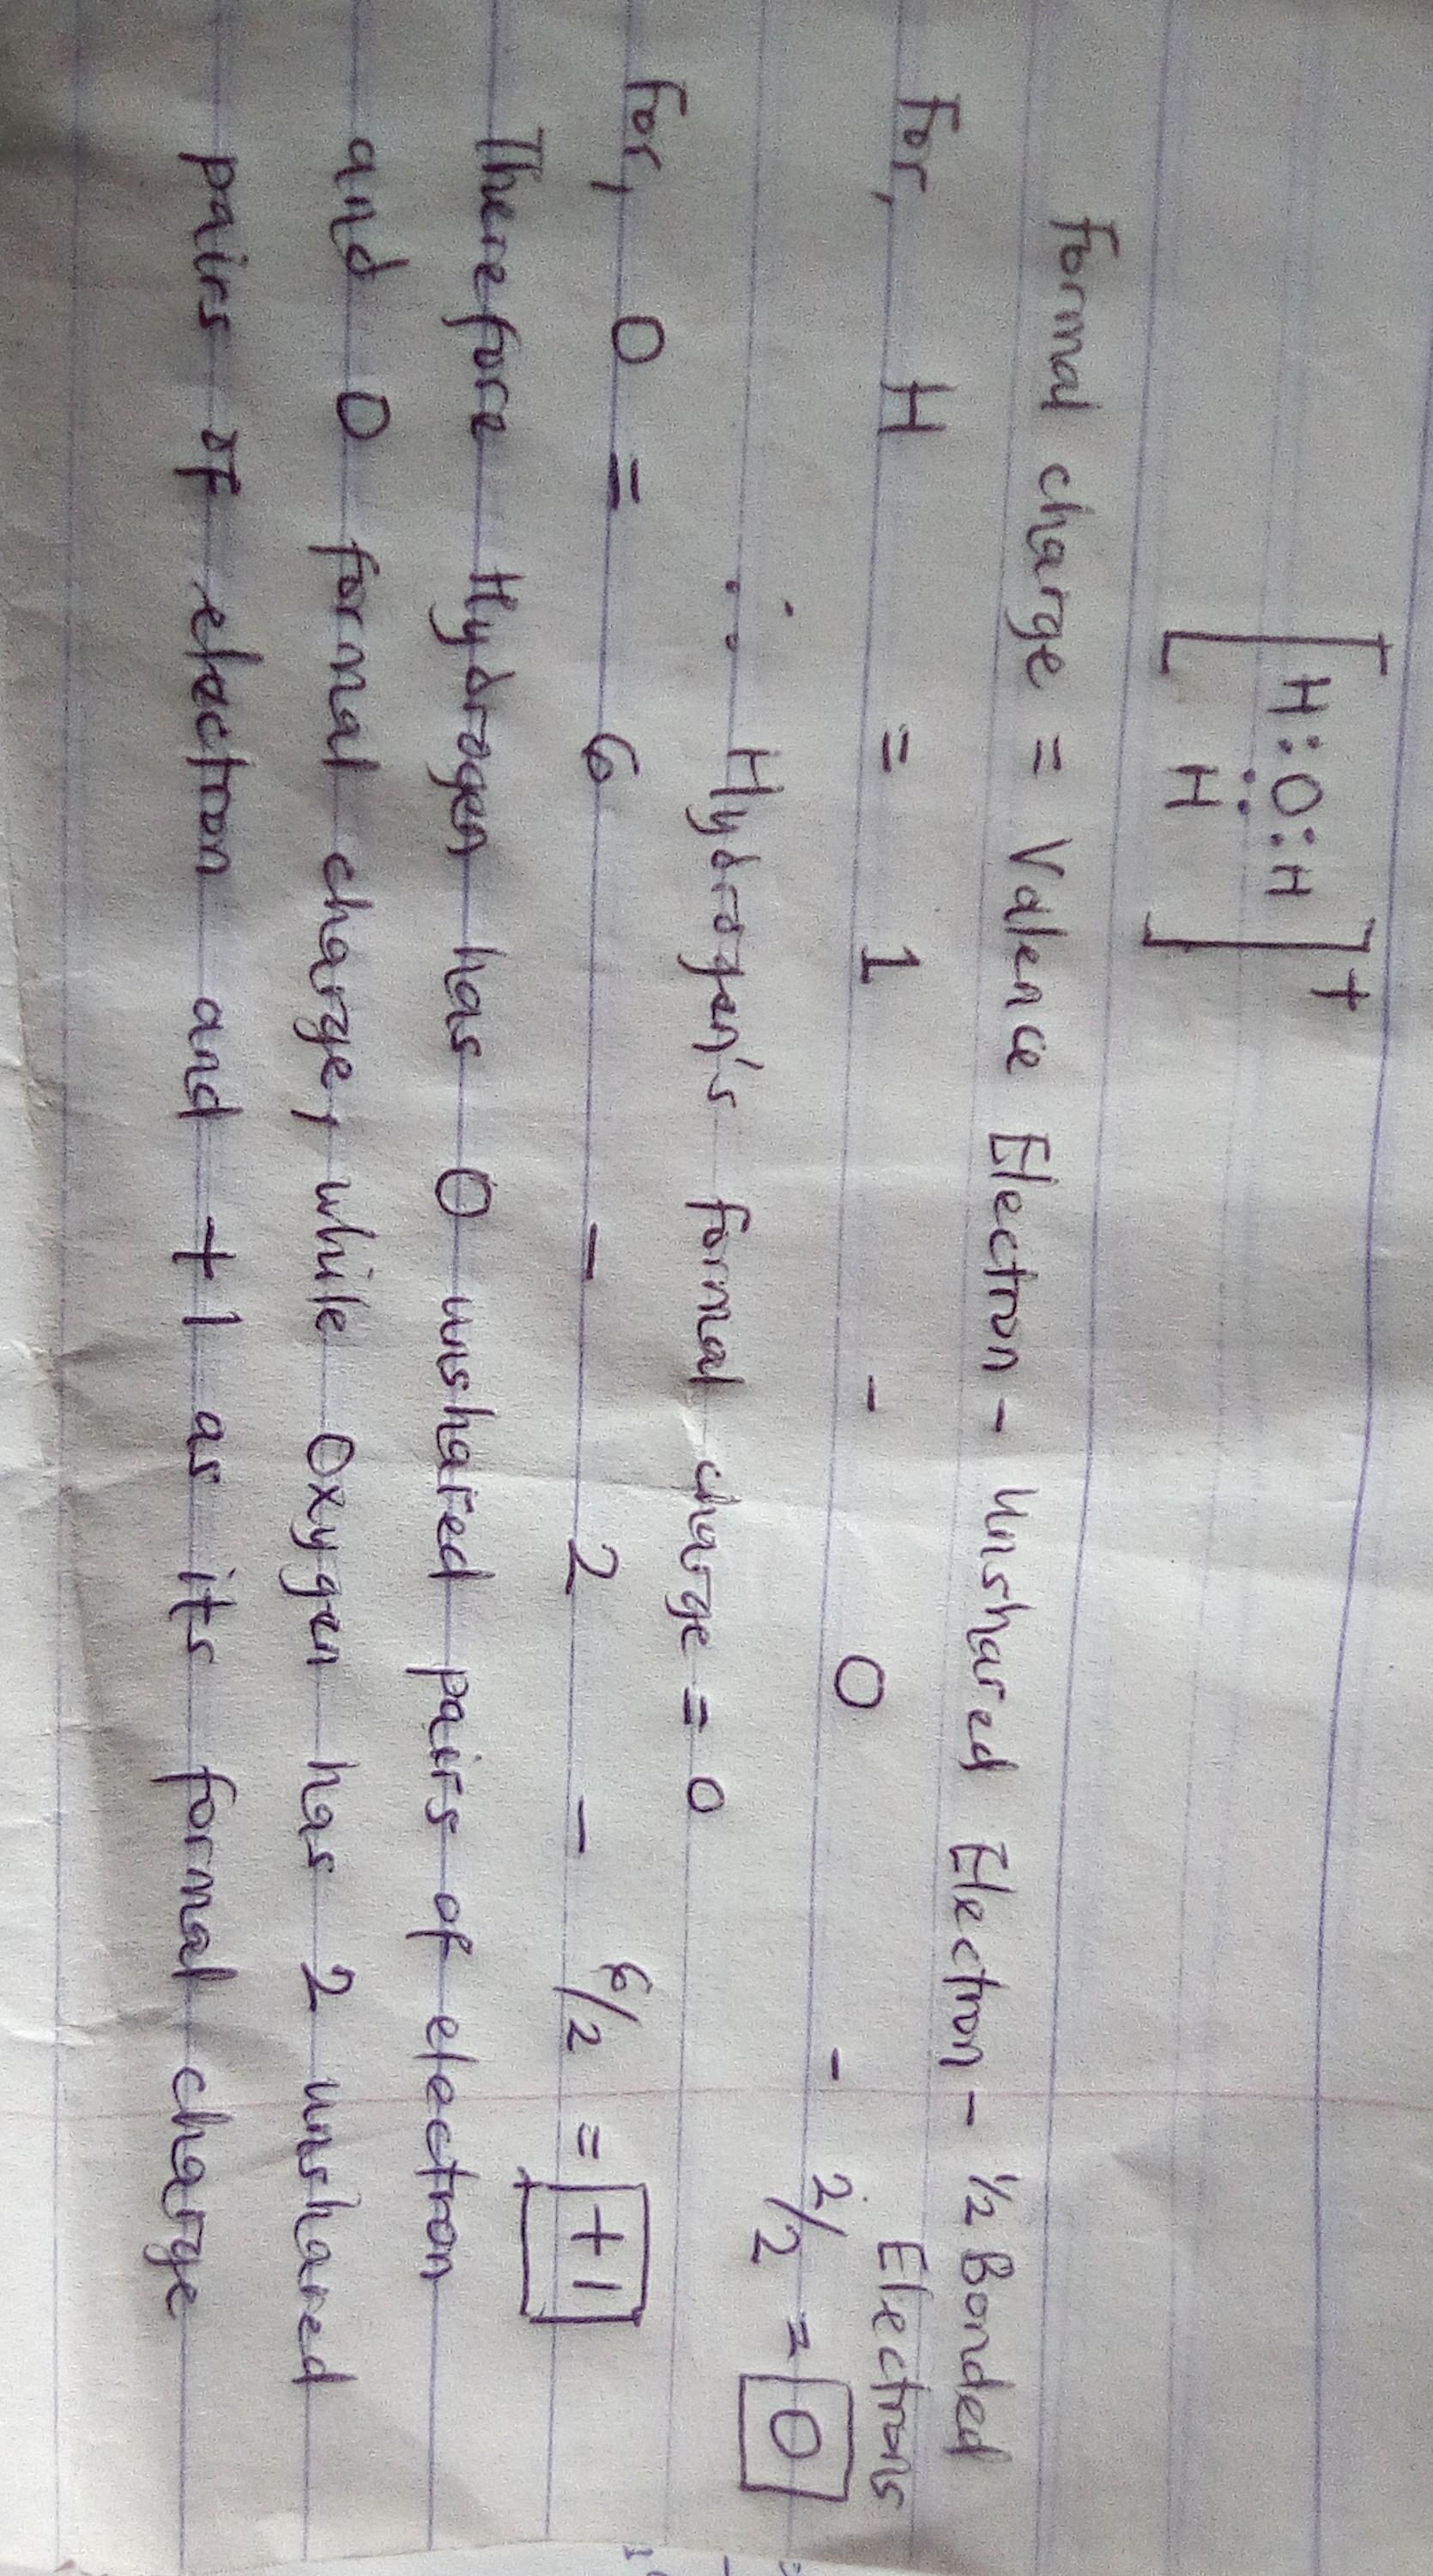 [H:O:H]+
H
Formal charge = Valence Electron - Unshared Electron - ½ Bonded
Electrons
For, H = 1 - 0 - 2/2 = 0
∴ Hydrogen's formal charge = 0
For, O = 6 - 2 - 6/2 = +1
Therefore Hydrogen has 0 unshared pairs of electron
and 0 formal charge, while Oxygen has 2 unshared
pairs of electron and +1 as its formal charge